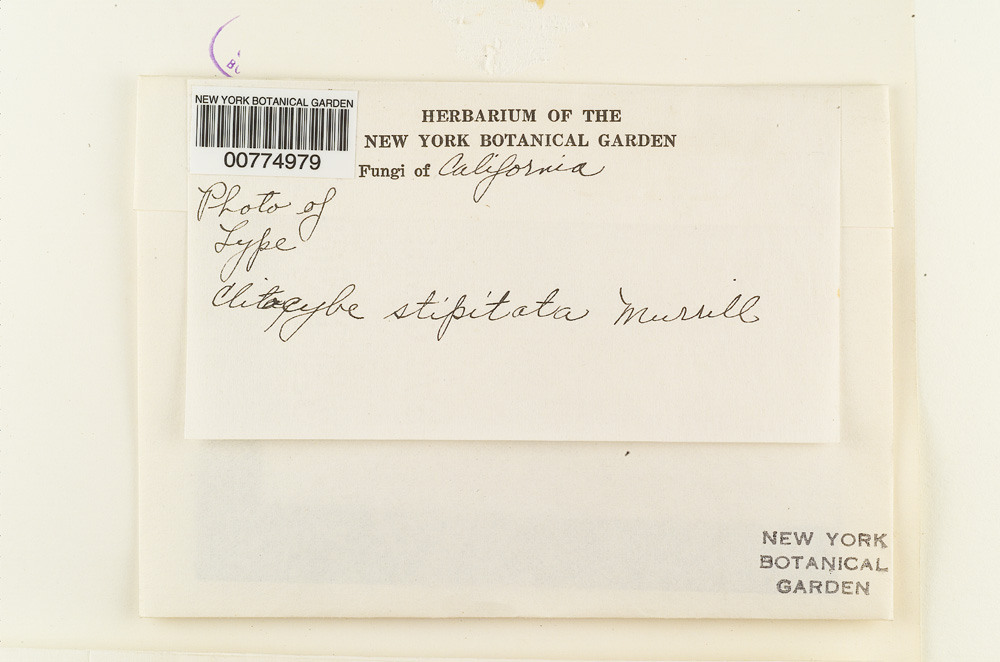 NEW YORK BOTANICAL GARDEN
00774979
HERBARIUM OF THE
NEW YORK BOTANICAL GARDEN
Fungi of California
Photo of
Type
Clitocybe stipitata Murrill
NEW YORK
BOTANICAL
GARDEN